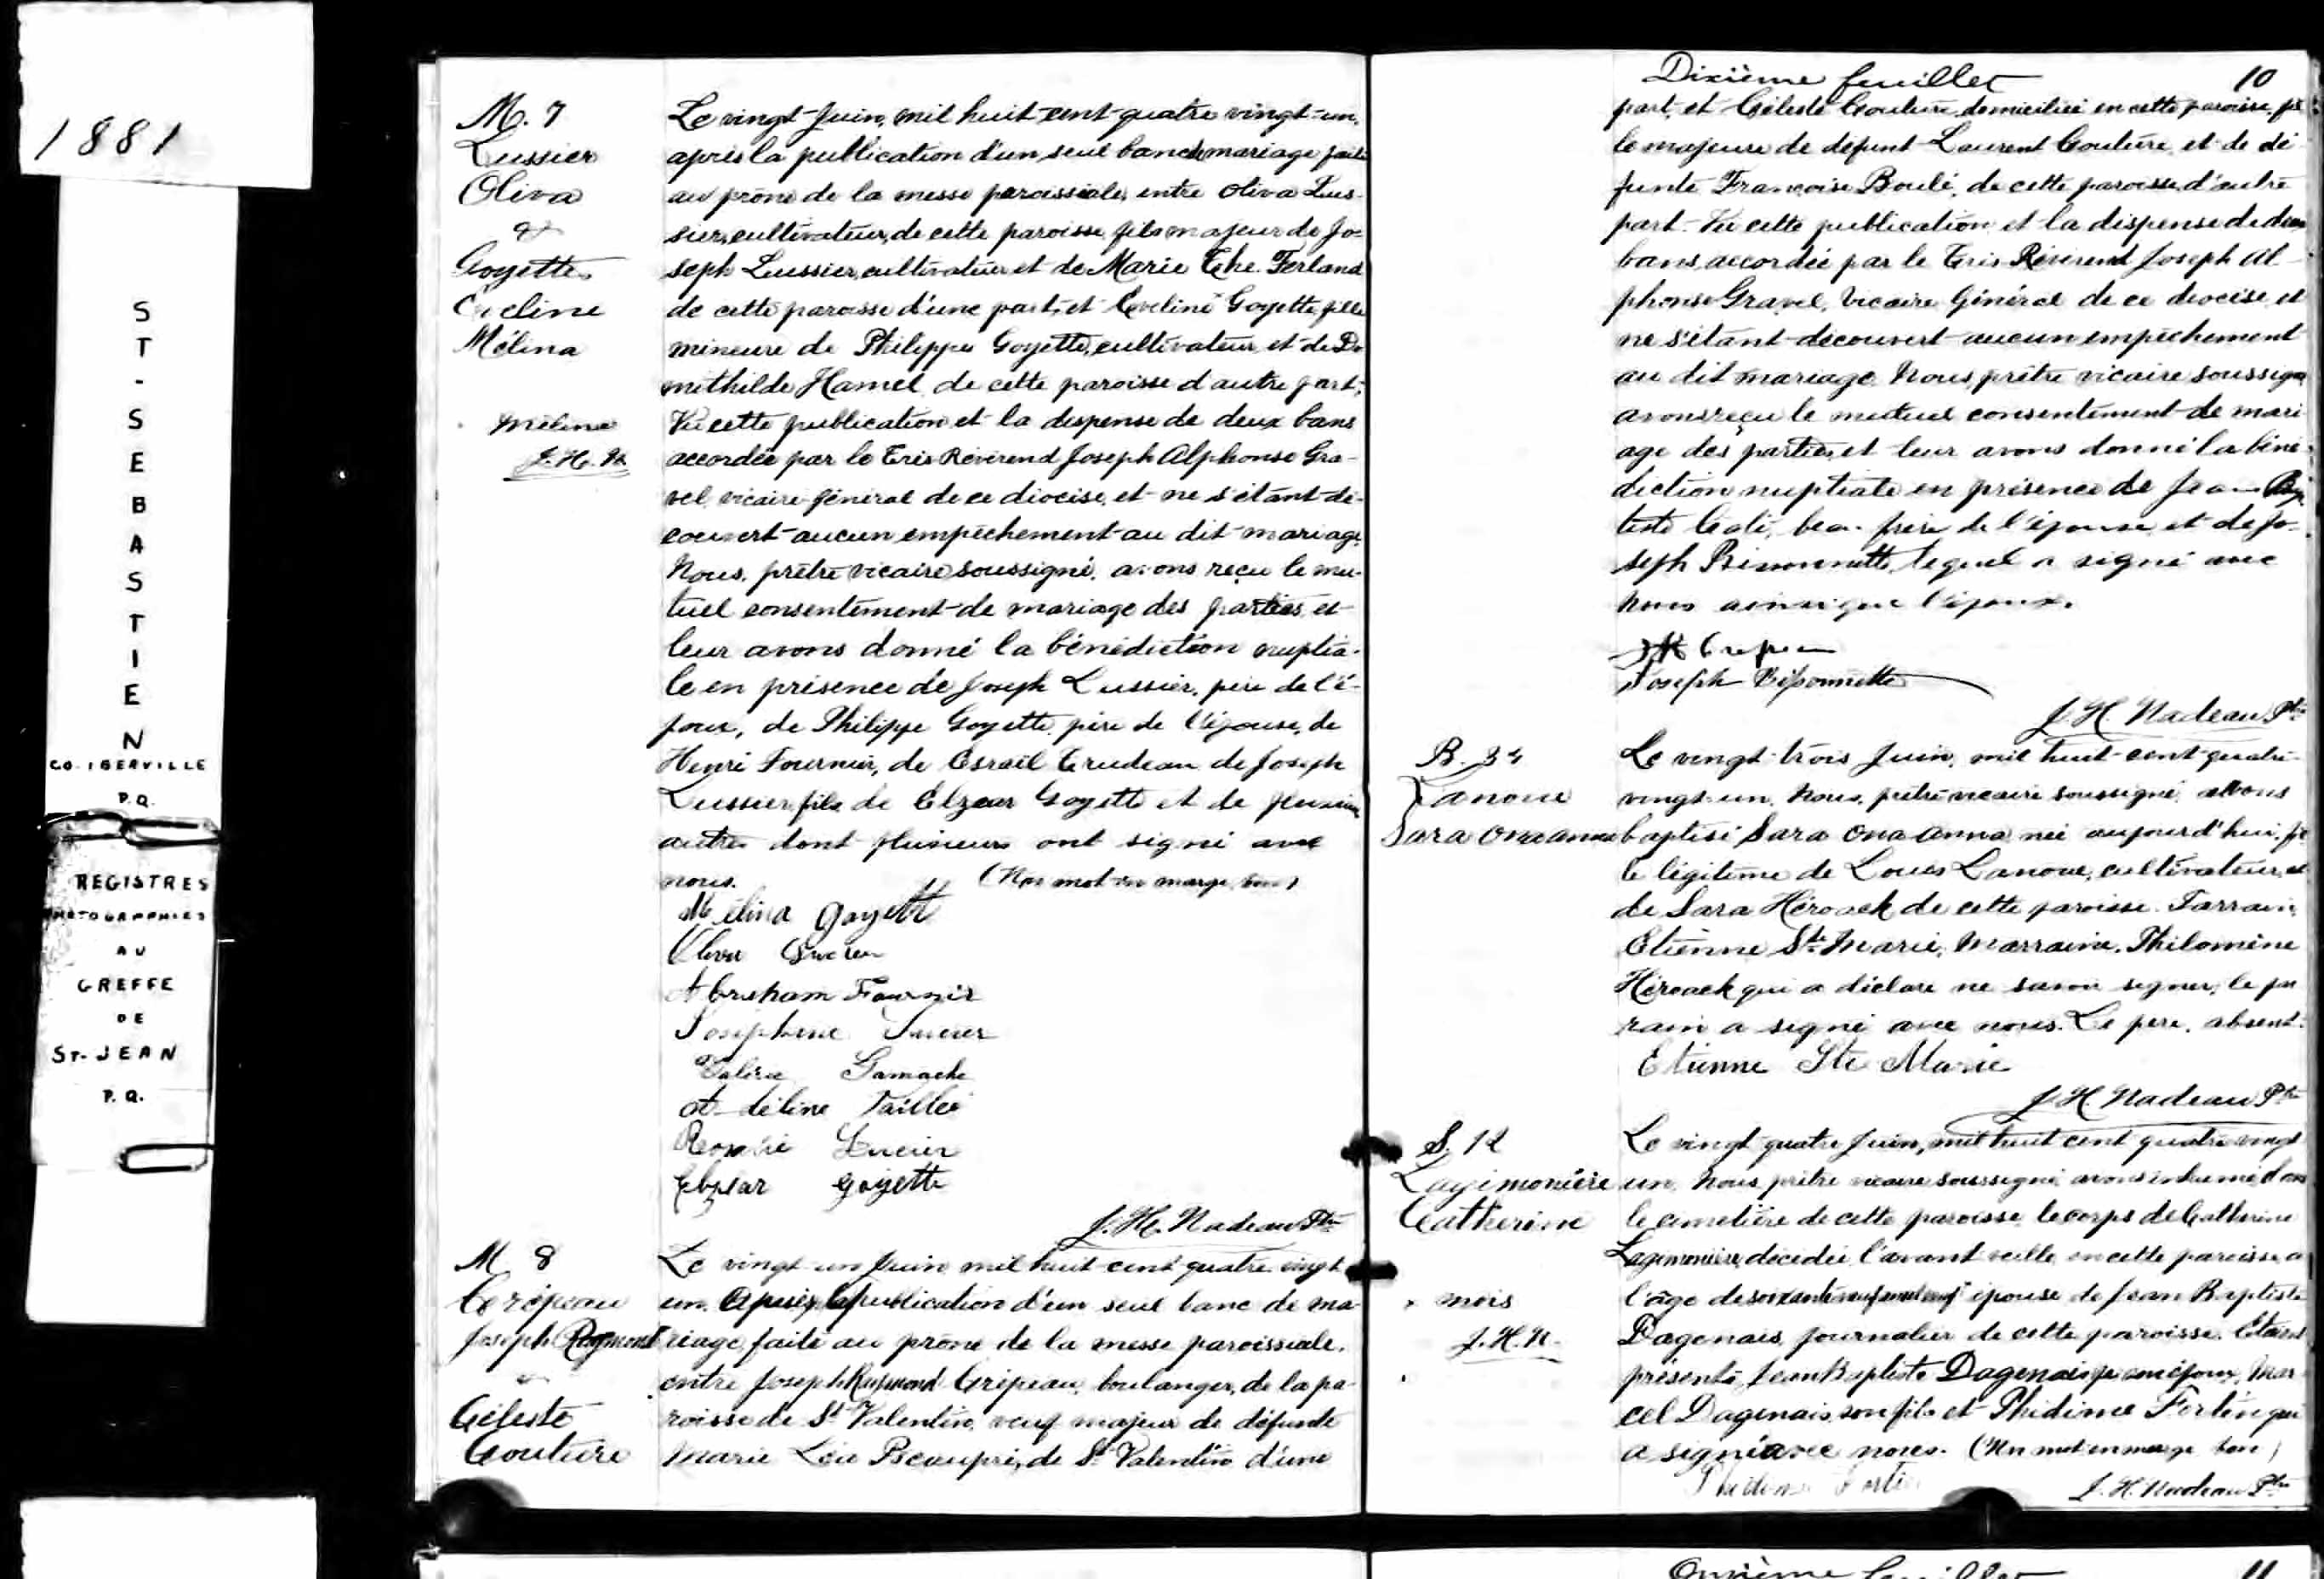 1881
ST-SEBASTIEN
CO. IBERVILLE
P.Q.
REGISTRES
PHOTOGRAPHIES
AU
GREFFE
DE
ST-JEAN
P.Q.
M. 7
Lussier
Oliva
&
Goyette
Eveline
Mélina
Mélina
J.H.N.
Le vingt Juin, mil huit cent quatre vingt-un,
après la publication d'un seul banc de mariage faite
au prône de la messe paroissiale, entre Oliva Lus-
sier, cultivateur, de cette paroisse, fils majeur de Jo-
seph Lussier, cultivateur et de Marie The. Ferland
de cette paroisse d'une part, et Eveline Goyette, fille
mineure de Philippe Goyette, cultivateur et de Do
mithilde Hamel de cette paroisse d'autre part;
Vu cette publication et la dispense de deux bans
accordée par le Très Révérend Joseph Alphonse Gra-
vel, vicaire général de ce diocèse, et ne s'étant dé-
couvert aucun empêchement au dit mariage,
Nous, prêtre vicaire soussigné, avons reçu le mu-
tuel consentement de mariage des parties, et
leur avons donné la bénédiction nuptia-
le en présence de Joseph Lussier, père de l'é-
poux, de Philippe Goyette père de l'épouse, de
Henri Fournier, de Esraël Trudeau de Joseph
Lussier, fils de Elzear Goyette et de plusieurs
autres dont plusieurs ont signé avec
nous. (Un mot en marge, bon)
Mélina Goyette
Abraham Fournir
Josephine Lucier
Gamache
Adéline Taillé
Lucier
Elzéar Goyette
J.H. Nadeau Ptre
M. 8
Crépeau
Joseph Raymond
&
Céleste
Couture
Le vingt un Juin mil huit cent quatre vingt
un. Après la publication d'un seul banc de ma-
riage faite au prône de la messe paroissiale,
entre Joseph Raymond Crépeau, boulanger, de la pa-
roisse de St Valentin, veuf majeur de défunte
Marie Léa Beaupré, de St Valentin d'une
Dixième feuillet 10
part, et Céleste Couture domiciliée en cette paroisse, fil
le majeure de défunt Laurent Couture et de dé-
funte Françoise Boulé, de cette paroisse, d'autre
part. Vu cette publication et la dispense de deux
bans accordée par le Très Révérend Joseph Al-
phonse Gravel, Vicaire Général de ce diocèse, et
ne s'étant découvert aucun empêchement
au dit mariage. Nous, prêtre vicaire soussigné
avons reçu le mutuel consentement de mari
age des parties, et leur avons donné la béné-
diction nuptiale en présence de Jean Bap-
tiste beau-frère de l'épouse, et de Jo-
seph Bissonnette, lequel a signé avec
nous ainsi que l'époux.
Crepeau
Joseph Bissonnette
J.H. Nadeau Ptre
B. 34
Lanoue
Sara Ona anna
Le vingt-trois Juin, mil huit cent quatre-
vingt-un, Nous, prêtre vicaire soussigné, avons
baptisé Sara Ona Anna née aujourd'hui, fil
le légitime de Louis Lanoue, cultivateur, et
de Sara Héroack de cette paroisse. Parrain,
Etienne Ste Marie, Marraine, Philomène
Héroack qui a déclaré ne savoir signer, le par
rain a signé avec nous. Le père, absent.
Etienne Ste Marie
J.H. Nadeau Ptre
S. 12
Lagimonière
Catherine
mois
J.H.N.
Le vingt quatre Juin, mil huit cent quatre vingt
un, Nous, prêtre vicaire soussigné, avons inhumé dans
le cimetière de cette paroisse, le corps de Catherine
Lagimonière, décédée l'avant veille, en cette paroisse, à
l'âge de soixante neuf ans et neuf épouse de Jean Baptiste
Dagenais, journalier de cette paroisse. Etaient
présents, Jean Baptiste Dagenais, époux, Mar
cel Dagenais, son fils et Phidime Fortin qui
a signé avec nous. (Un mot en marge bon)
Phidime Fortin
J.H. Nadeau Ptre
Onzième feuillet 11